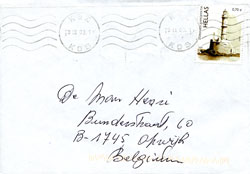 HELLAS
De Man Henri
Bunderstraat, 60
B-1745 Opwijk
Belgium